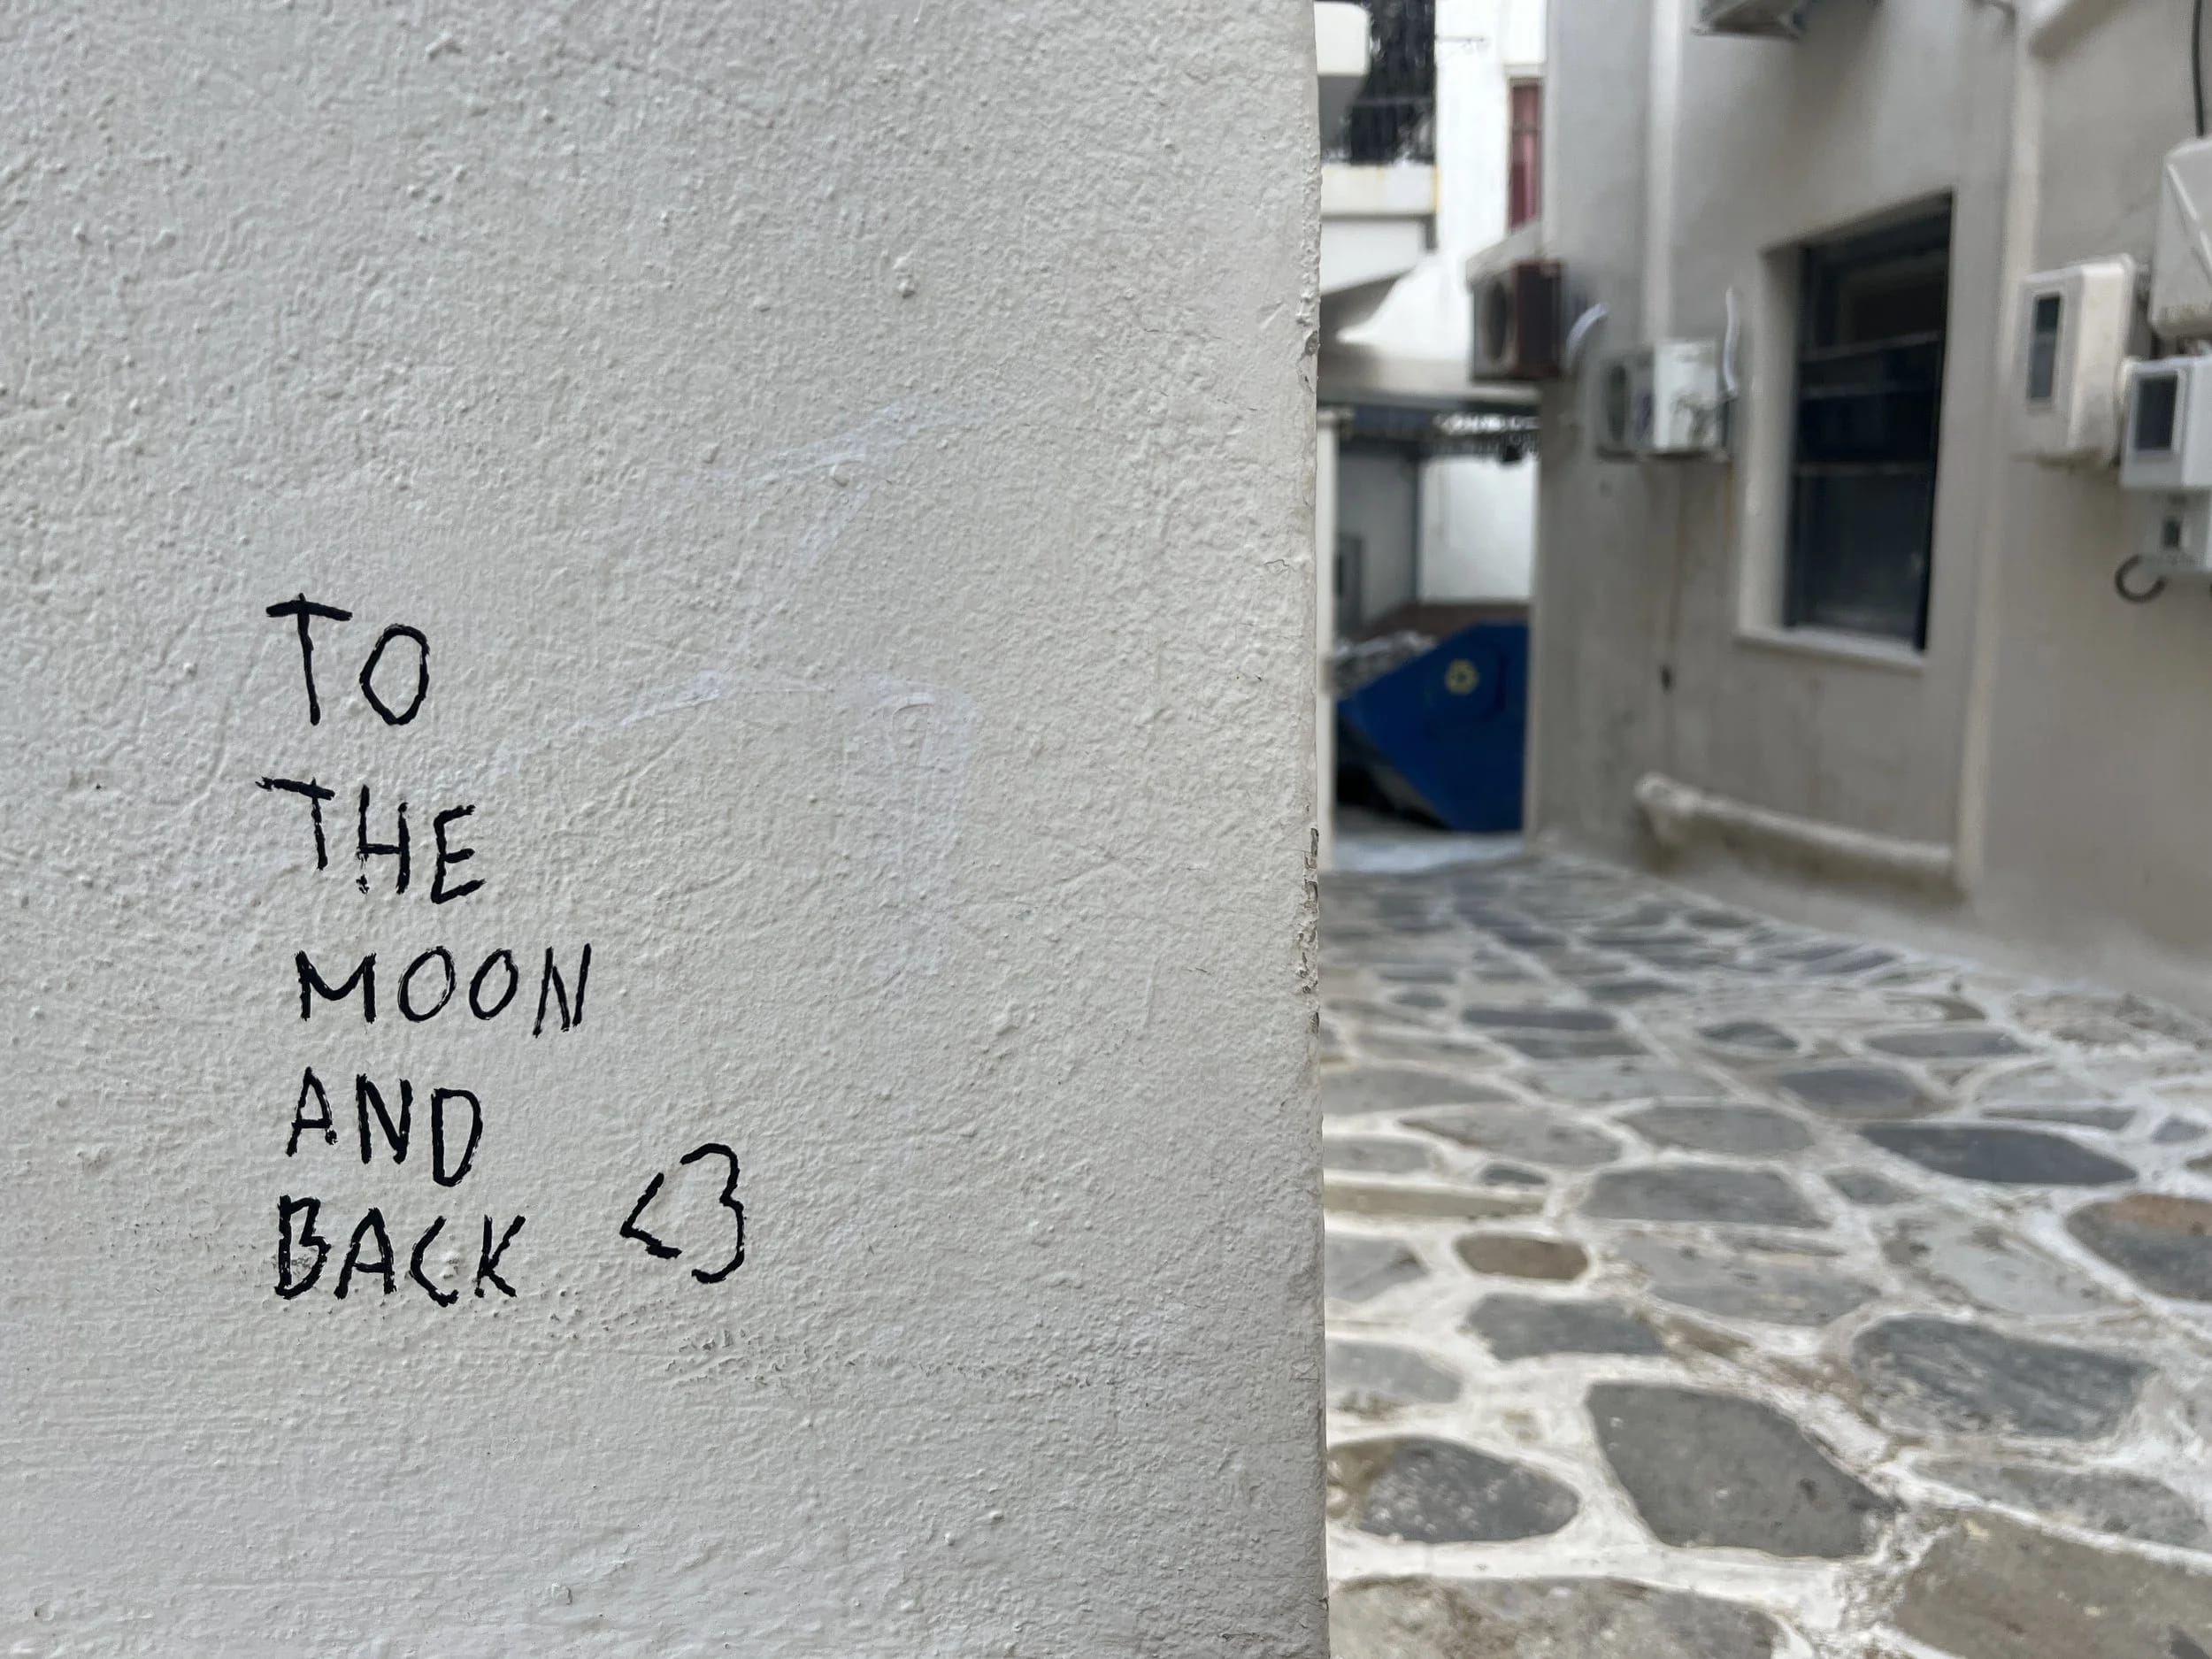 TO
THE
MOON
AND
BACK <3